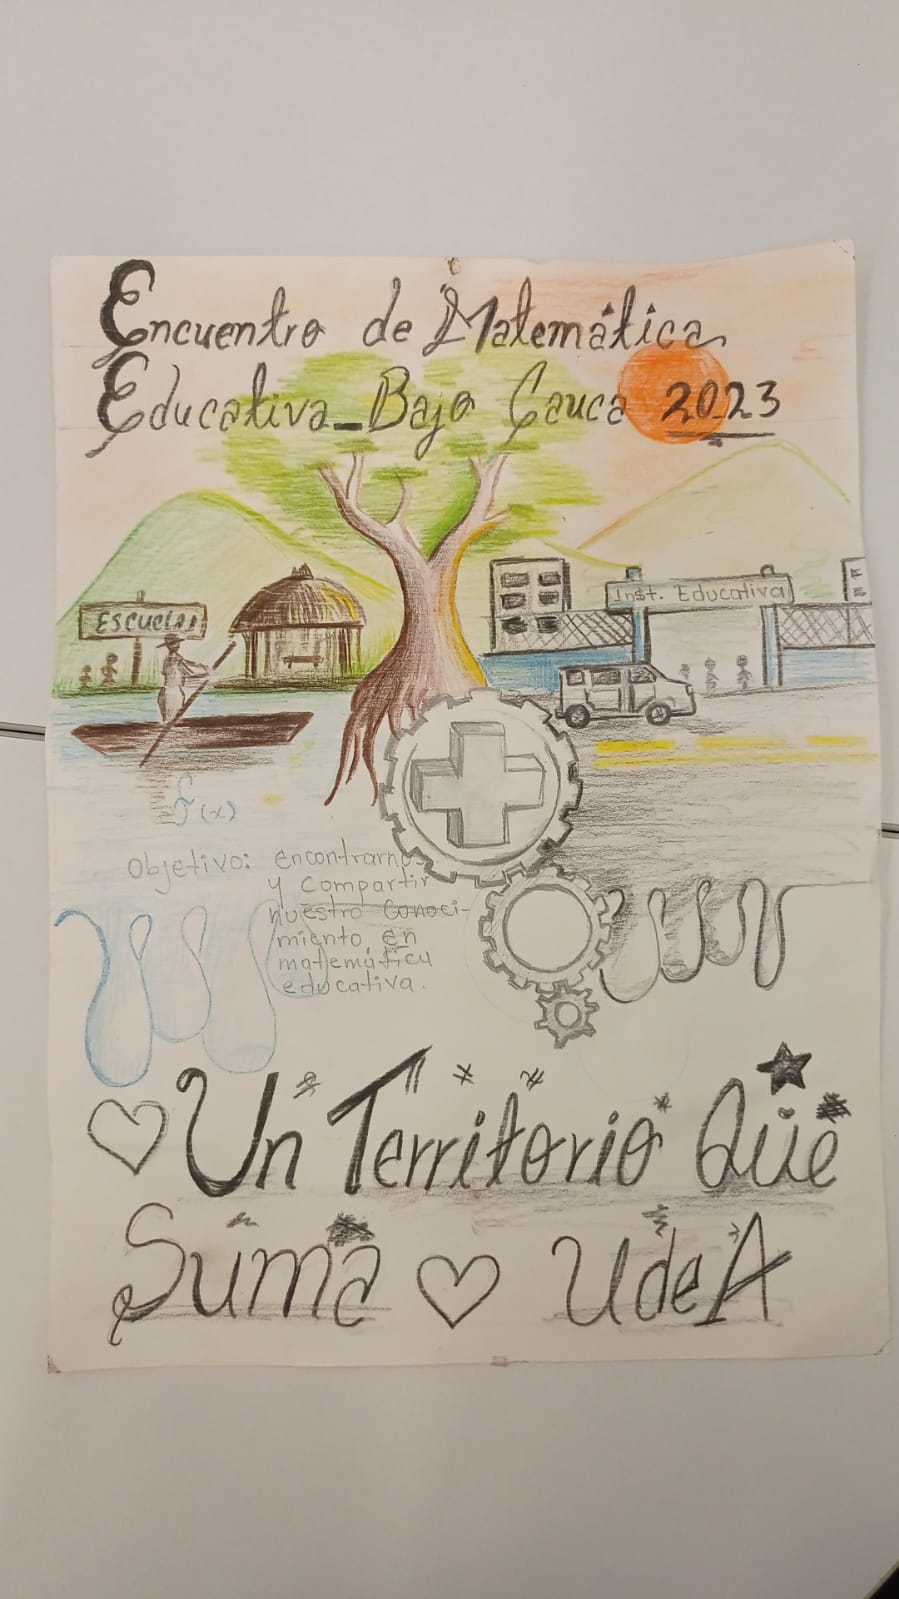 Encuentro de Matemática
Educativa_Bajo Cauca 2023
ESCUELA
Inst. Educativa
f(x)
Objetivo: encontrarnos
y compartir
nuestro conoci-
miento en
matemática
educativa.
Un Territorio Que
Suma UdeA